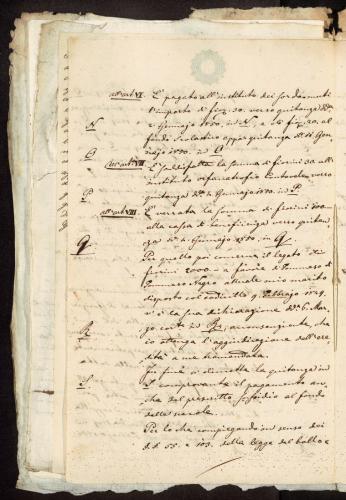 all'art VI. E' pagato all'instituto dei sordo muti
l'importo di fior. 30. verso quitanza dto
2 Gennajo 1850. in N, e di fior. 20. al
N
fondo scolastico appar quitanza dd. 11. Gen-
najo 1850. in O
O
all'art VII. E' soddisfatta la somma di fiorini 30. all'
instituto orfanotrofio verso
P
quitanza dto 2 Gennajo 1850. in P.
all'art VIII. E' versata la somma di fiorini 100
alla cassa di beneficenza verso quitan-
Q
za dto 2 Gennajo 1850. in Q.
Per quello poi concerne il legato di
fiorini 2000 a favore di Tommaso di
Tommaso Negro attuale mio marito
disposto col codicillo 9. Febbrajo 1849.
v'è la sua dichiarazione dto 6. Mar-
R
zo corr. in R, acconsenziente, che
io ottenga l'aggiudicazione dell'ere-
dità a me tramandata.
In fine si dimette la quitanza in
S
S comprovante il pagamento an-
che del prescritto sussidio al fondo
delle scuole.
Per lo che compiegando in senso dei
§.§ 55. e 103. della legge del bollo e